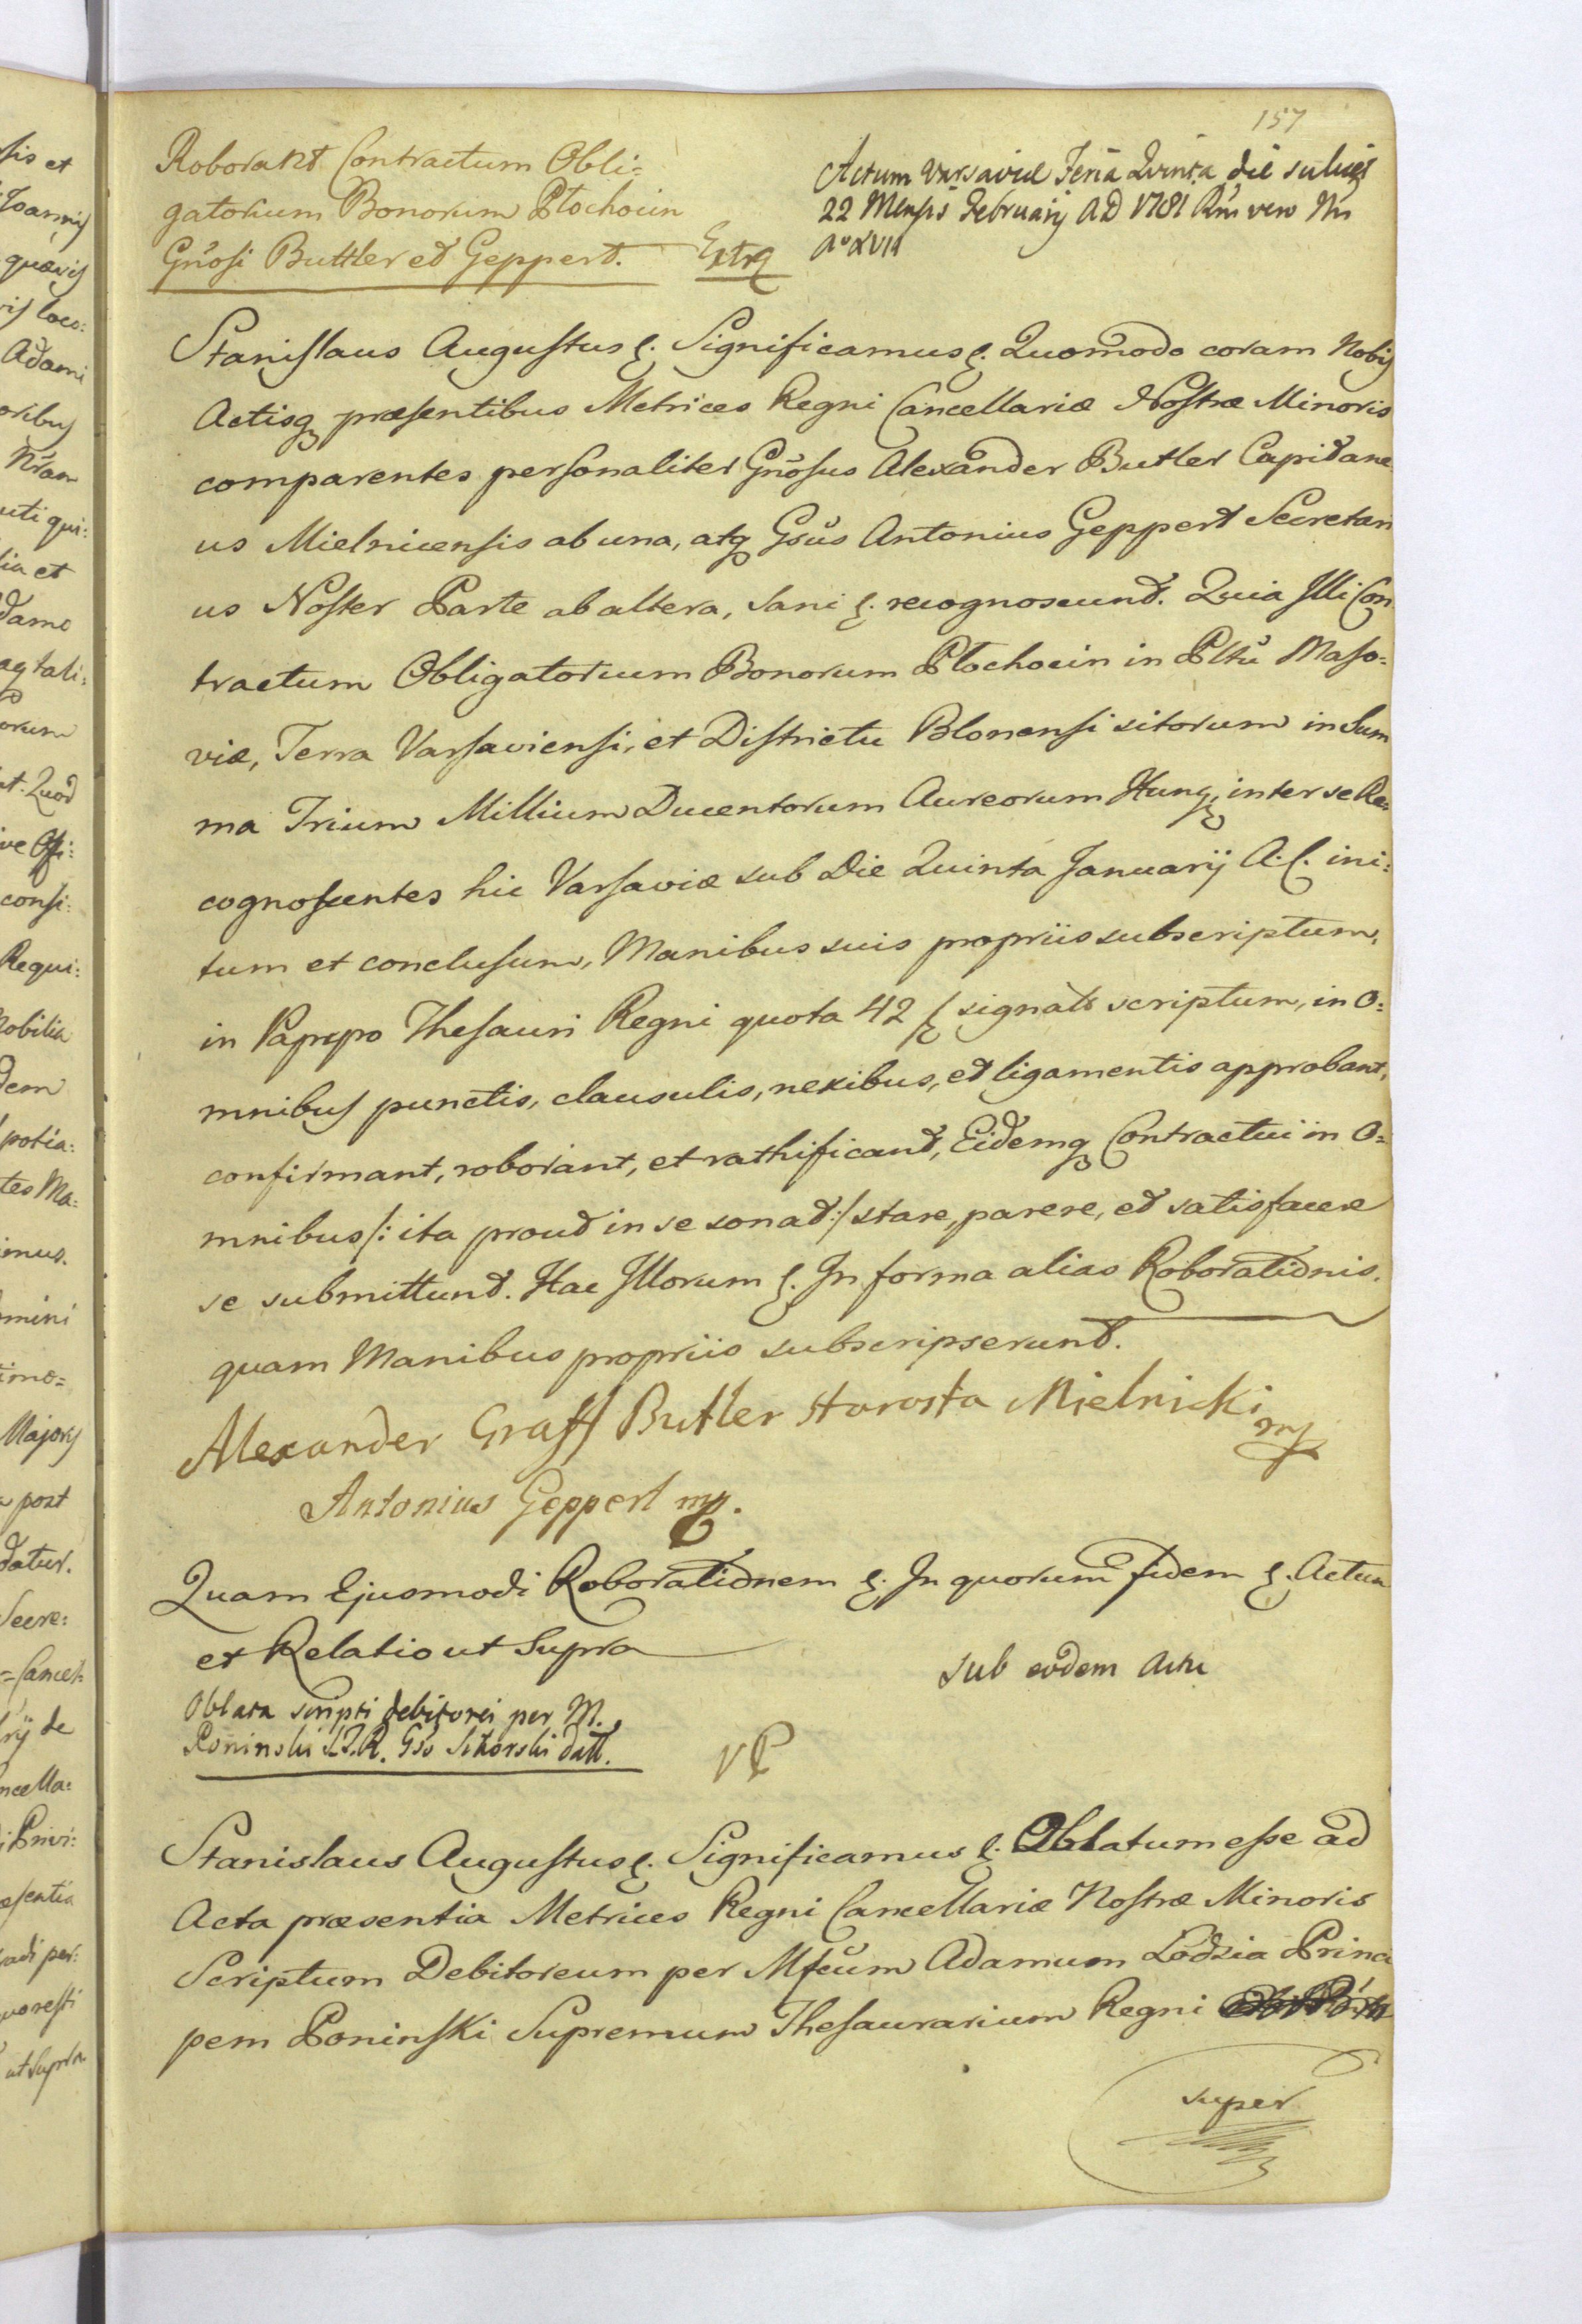 157
Roborant Contractum Obli=
gatorium Bonorum Płochocin
Gnõsi Buttler et Geppert. Extrq
Actum Varsaviæ Feria Qvinta die
22 Mensis Februarij AD 1781 Rni vero Nri
Aº XVII
Stanislaus Augustus ę. Significamus ę. Quomodo coram Nobis
Actisq præsentibus Metrices Regni Cancellariæ Nostræ Minoris
comparentes personaliter Gnõsus Alexander Butler Capitane
us Mielnicensis ab una, atq Gsůs Antonius Geppert Secretari
us Noster Parte ab altera, sani ę. recognoscunt. Quia Illi Con
tractum Obligatorium Bonorum Płochocin in Pltů Maso=
viæ, Terra Varsaviensi, et Districtu Blonensi sitorum in Sum
ma Trium Millium Ducentorum Aureorum Hung, inter se Re=
cognoscentes hic Varsaviæ sub Die Quinta Januarij A. C. ini=
tum et conclusum, Manibus suis propriis subscriptum,
in Papyro Thesauri Regni quota 42 ę signato scriptum, in o=
mnibus punctis, clausulis, nexibus, et ligamentis approbant,
confirmant, roborant, et rathificant, Eidemq Contractui in o=
mnibus /: ita prout in se sonat :/ stare, parere, et satisfacere
se submittunt. Hac Illorum ę. In forma alias Roborationis.
quam Manibus propriis subscripserunt.
Alexander Graff Butler starosta Mielnicki mp
Antonius Geppert mp.
Quam Ejusmodi Roborationem ę. In quorum fidem ę. Actum
et Relatio ut Supra
sub eodem Actu
Oblata scripti debitorei per M.
Poninski S.T.R. Gso Sikorski datt.
VP
Stanislaus Augustus ę. Significamus ę. Oblatum esse ad
Acta præsentia Metrices Regni Cancellariæ Nostræ Minoris
Scriptum Debitoreum per Mfcům Adamum Lodzia Princi
pem Poninski Supremum Thesaurarium Regni
super